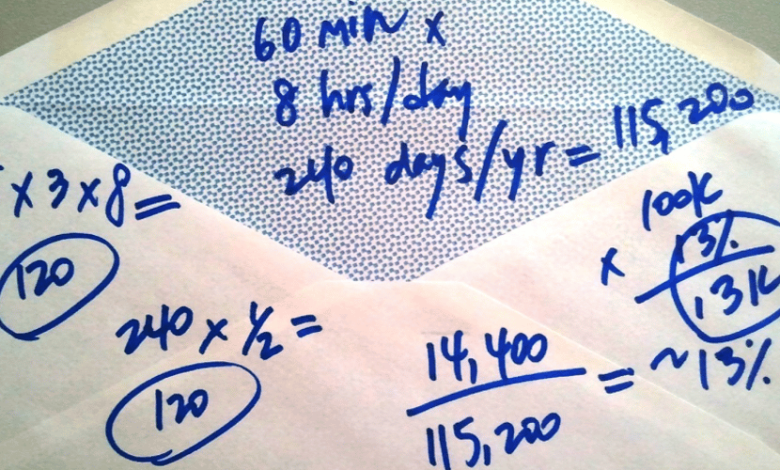 60 min x
8 hrs/day
240 days/yr = 115,200
x 3 x 8 =
120
240 x 1/2 =
120
14,400
115,200
= ~13%
100K
x 13%
13K